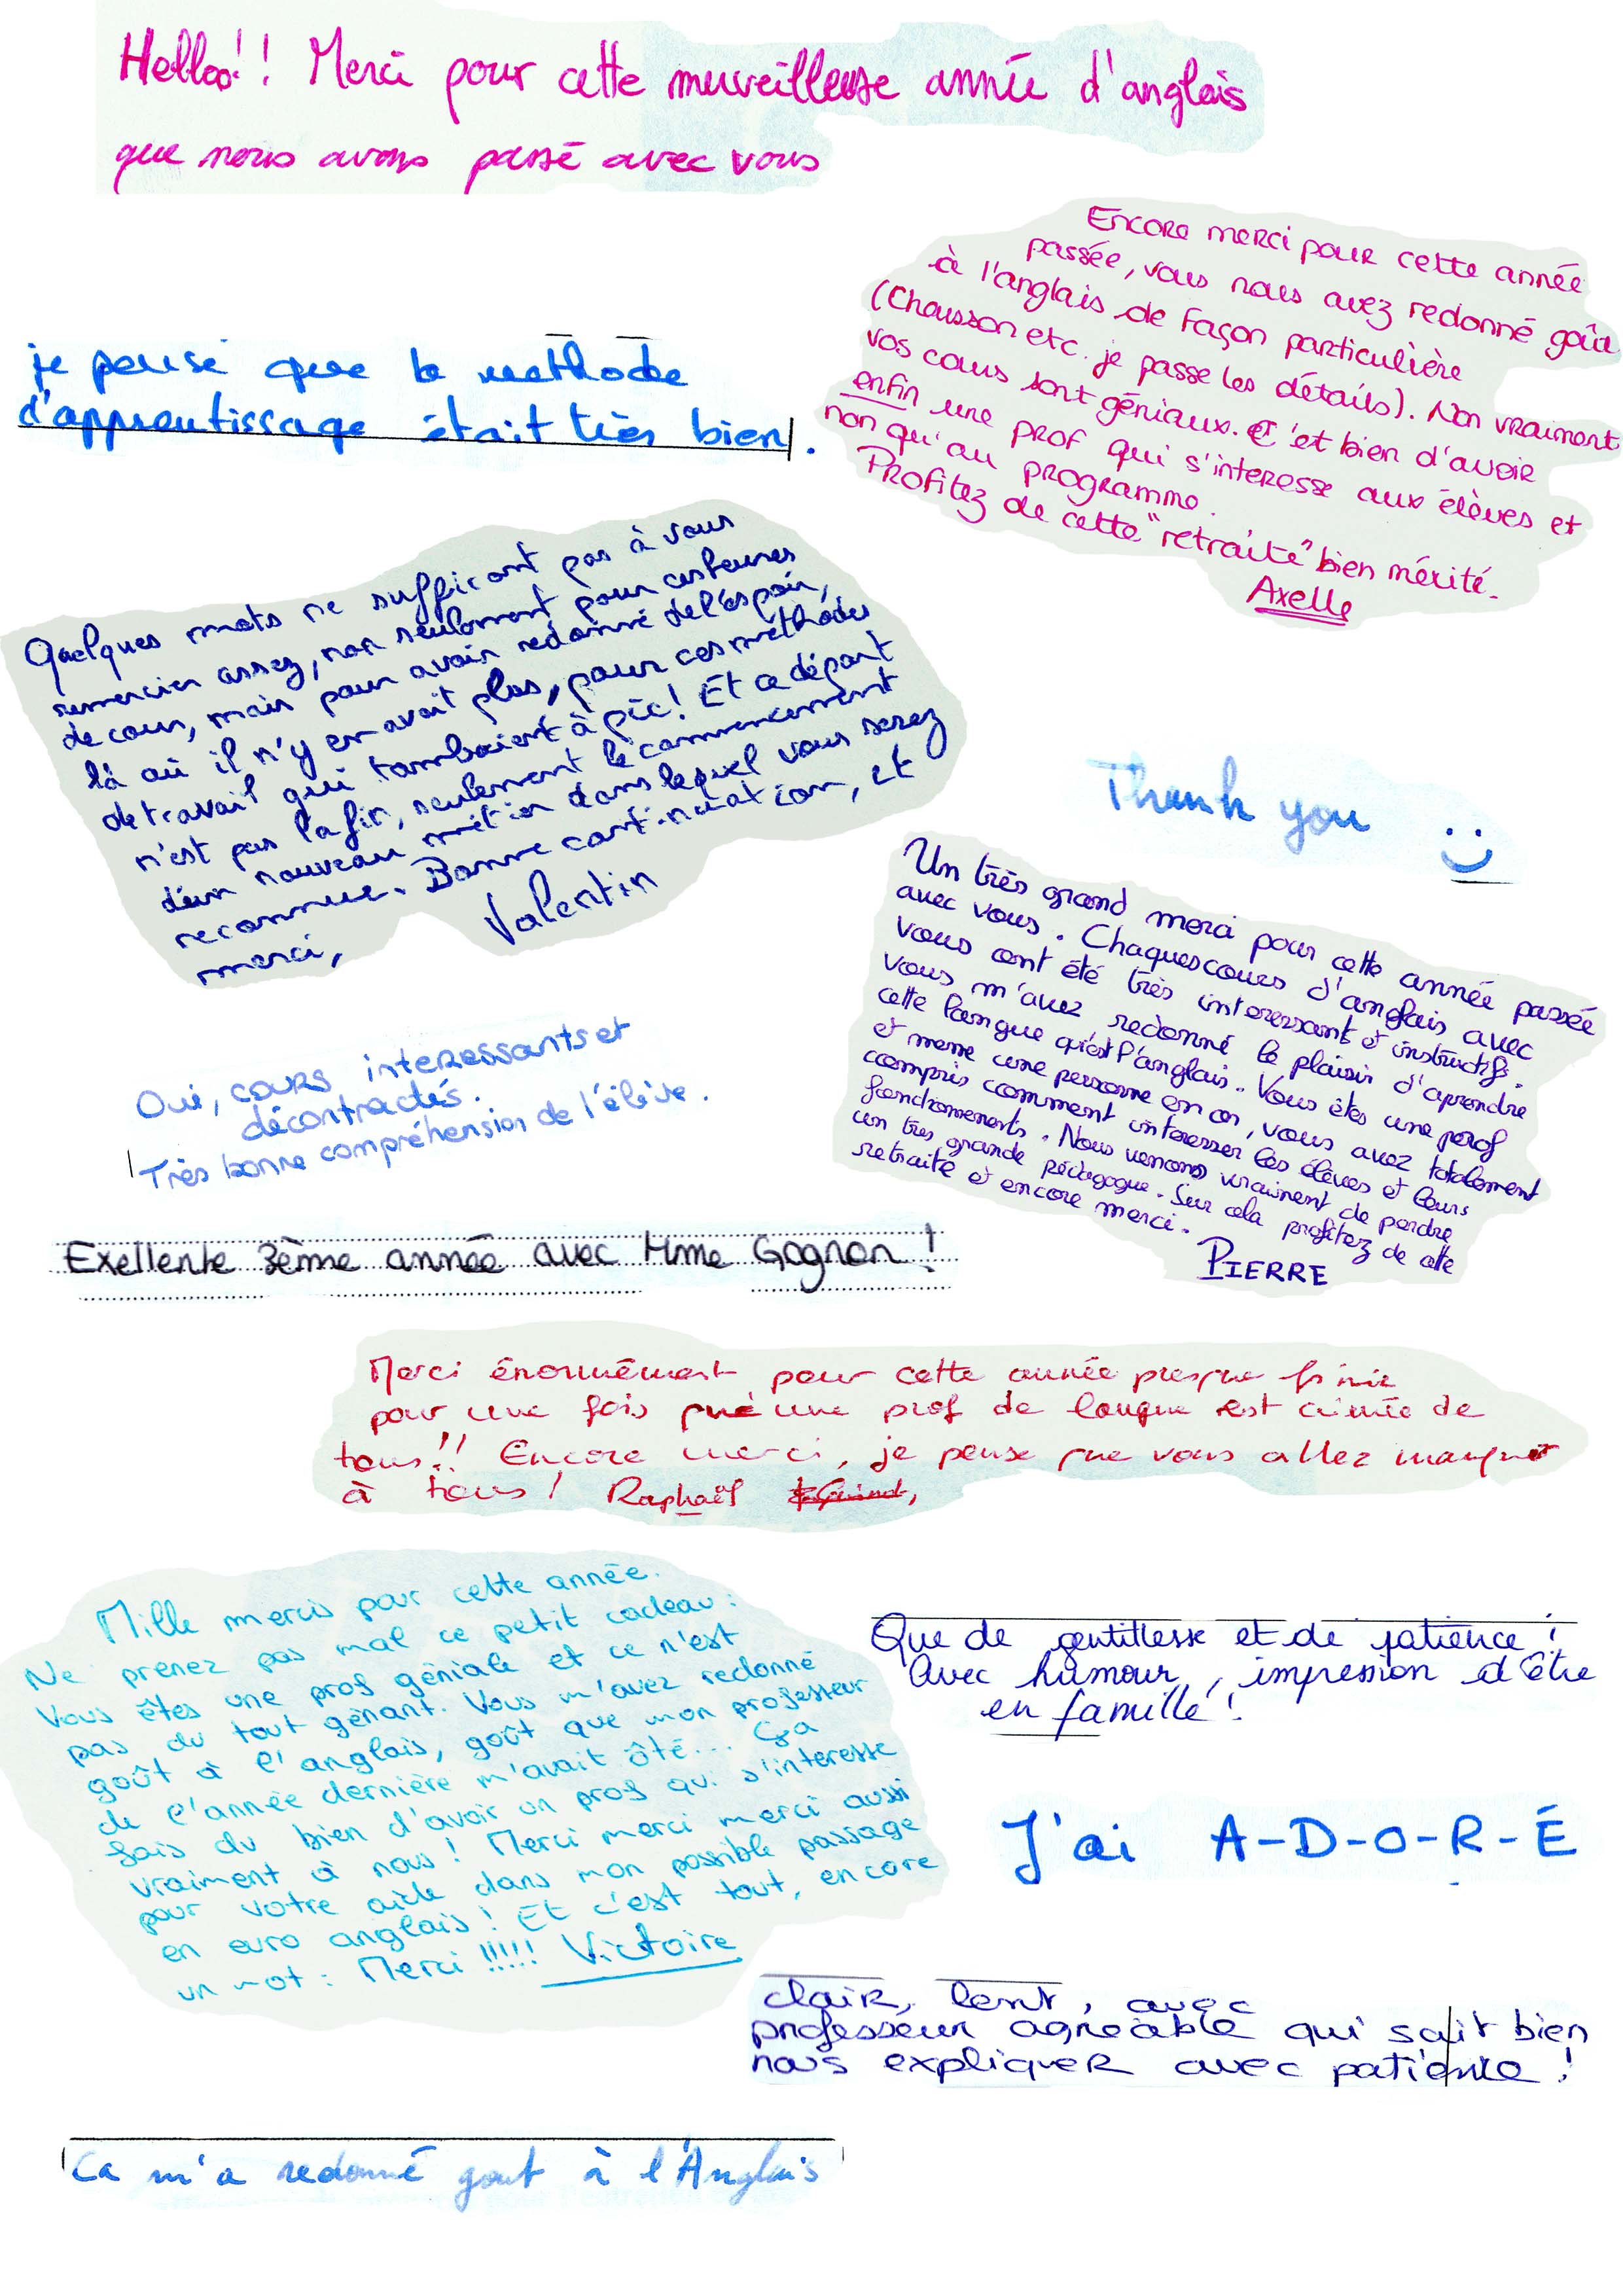 Helloo!! Merci pour cette merveilleuse année d'anglais
que nous avons passé avec vous
Encore merci pour cette année
passée, vous nous avez redonné goût
à l'anglais de façon particulière
(Chausson etc. je passe les détails). Non vraiment
vos cours sont géniaux. C'et bien d'avoir
enfin une prof qui s'interesse aux élèves et
non qu'au programme.
Profitez de cette "retraite" bien mérité.
Axelle
je pense que la méthode
d'apprentissage était très bien.
Quelques mots ne suffiront pas à vous
remercier assez, non seulement pour ces heures
de cour, mais pour avoir redonné de l'espoir,
là où il n'y en avait plus, pour ces méthodes
de travail qui tombaient à pic! Et ce départ
n'est pas la fin, seulement le commencement
d'un nouveau métier dans lequel vous serez
reconnue. Bonne continuation, et
merci,
Valentin
Thank you :)
Un très grand merci pour cette année passée
avec vous. Chaques cours d'anglais avec
vous ont été très interessant et instructifs.
vous m'avez redonné le plaisir d'aprendre
cette langue qu'est l'anglais. Vous êtes une prof
et meme une personne en or, vous avez totalement
compris comment interesser les élèves et leurs
fonctionements. Nous venons vraiment de perdre
un très grande pédagogue. Sur cela profitez de cette
retraite et encore merci.
PIERRE
Oui, cours interessants et
décontractés.
Très bonne compréhension de l'élève.
Exellente 3ème année avec Mme Gagnon !
Merci énormément pour cette année presque finie
pour une fois qu'une prof de langue est aimée de
tous!! Encore merci, je pense que vous allez manquer
à tous! Raphaël
Mille mercis pour cette année.
Ne prenez pas mal ce petit cadeau:
Vous êtes une prof géniale et ce n'est
pas du tout gênant. Vous m'avez redonné
goût à l'anglais, goût que mon professeur
de l'année dernière m'avait ôté... Ça
fais du bien d'avoir un prof qui s'interesse
vraiment à nous! Merci merci merci aussi
pour votre aide dans mon possible passage
en euro anglais! Et c'est tout, encore
un mot: Merci !!!!! Victoire
Que de gentillesse et de patience!
Avec humour, impression d'être
en famille!
J'ai A-D-O-R-É
clair, lent, avec
professeur agréable qui sait bien
nous expliquer avec patience!
Ca m'a redonné gout à l'Anglais